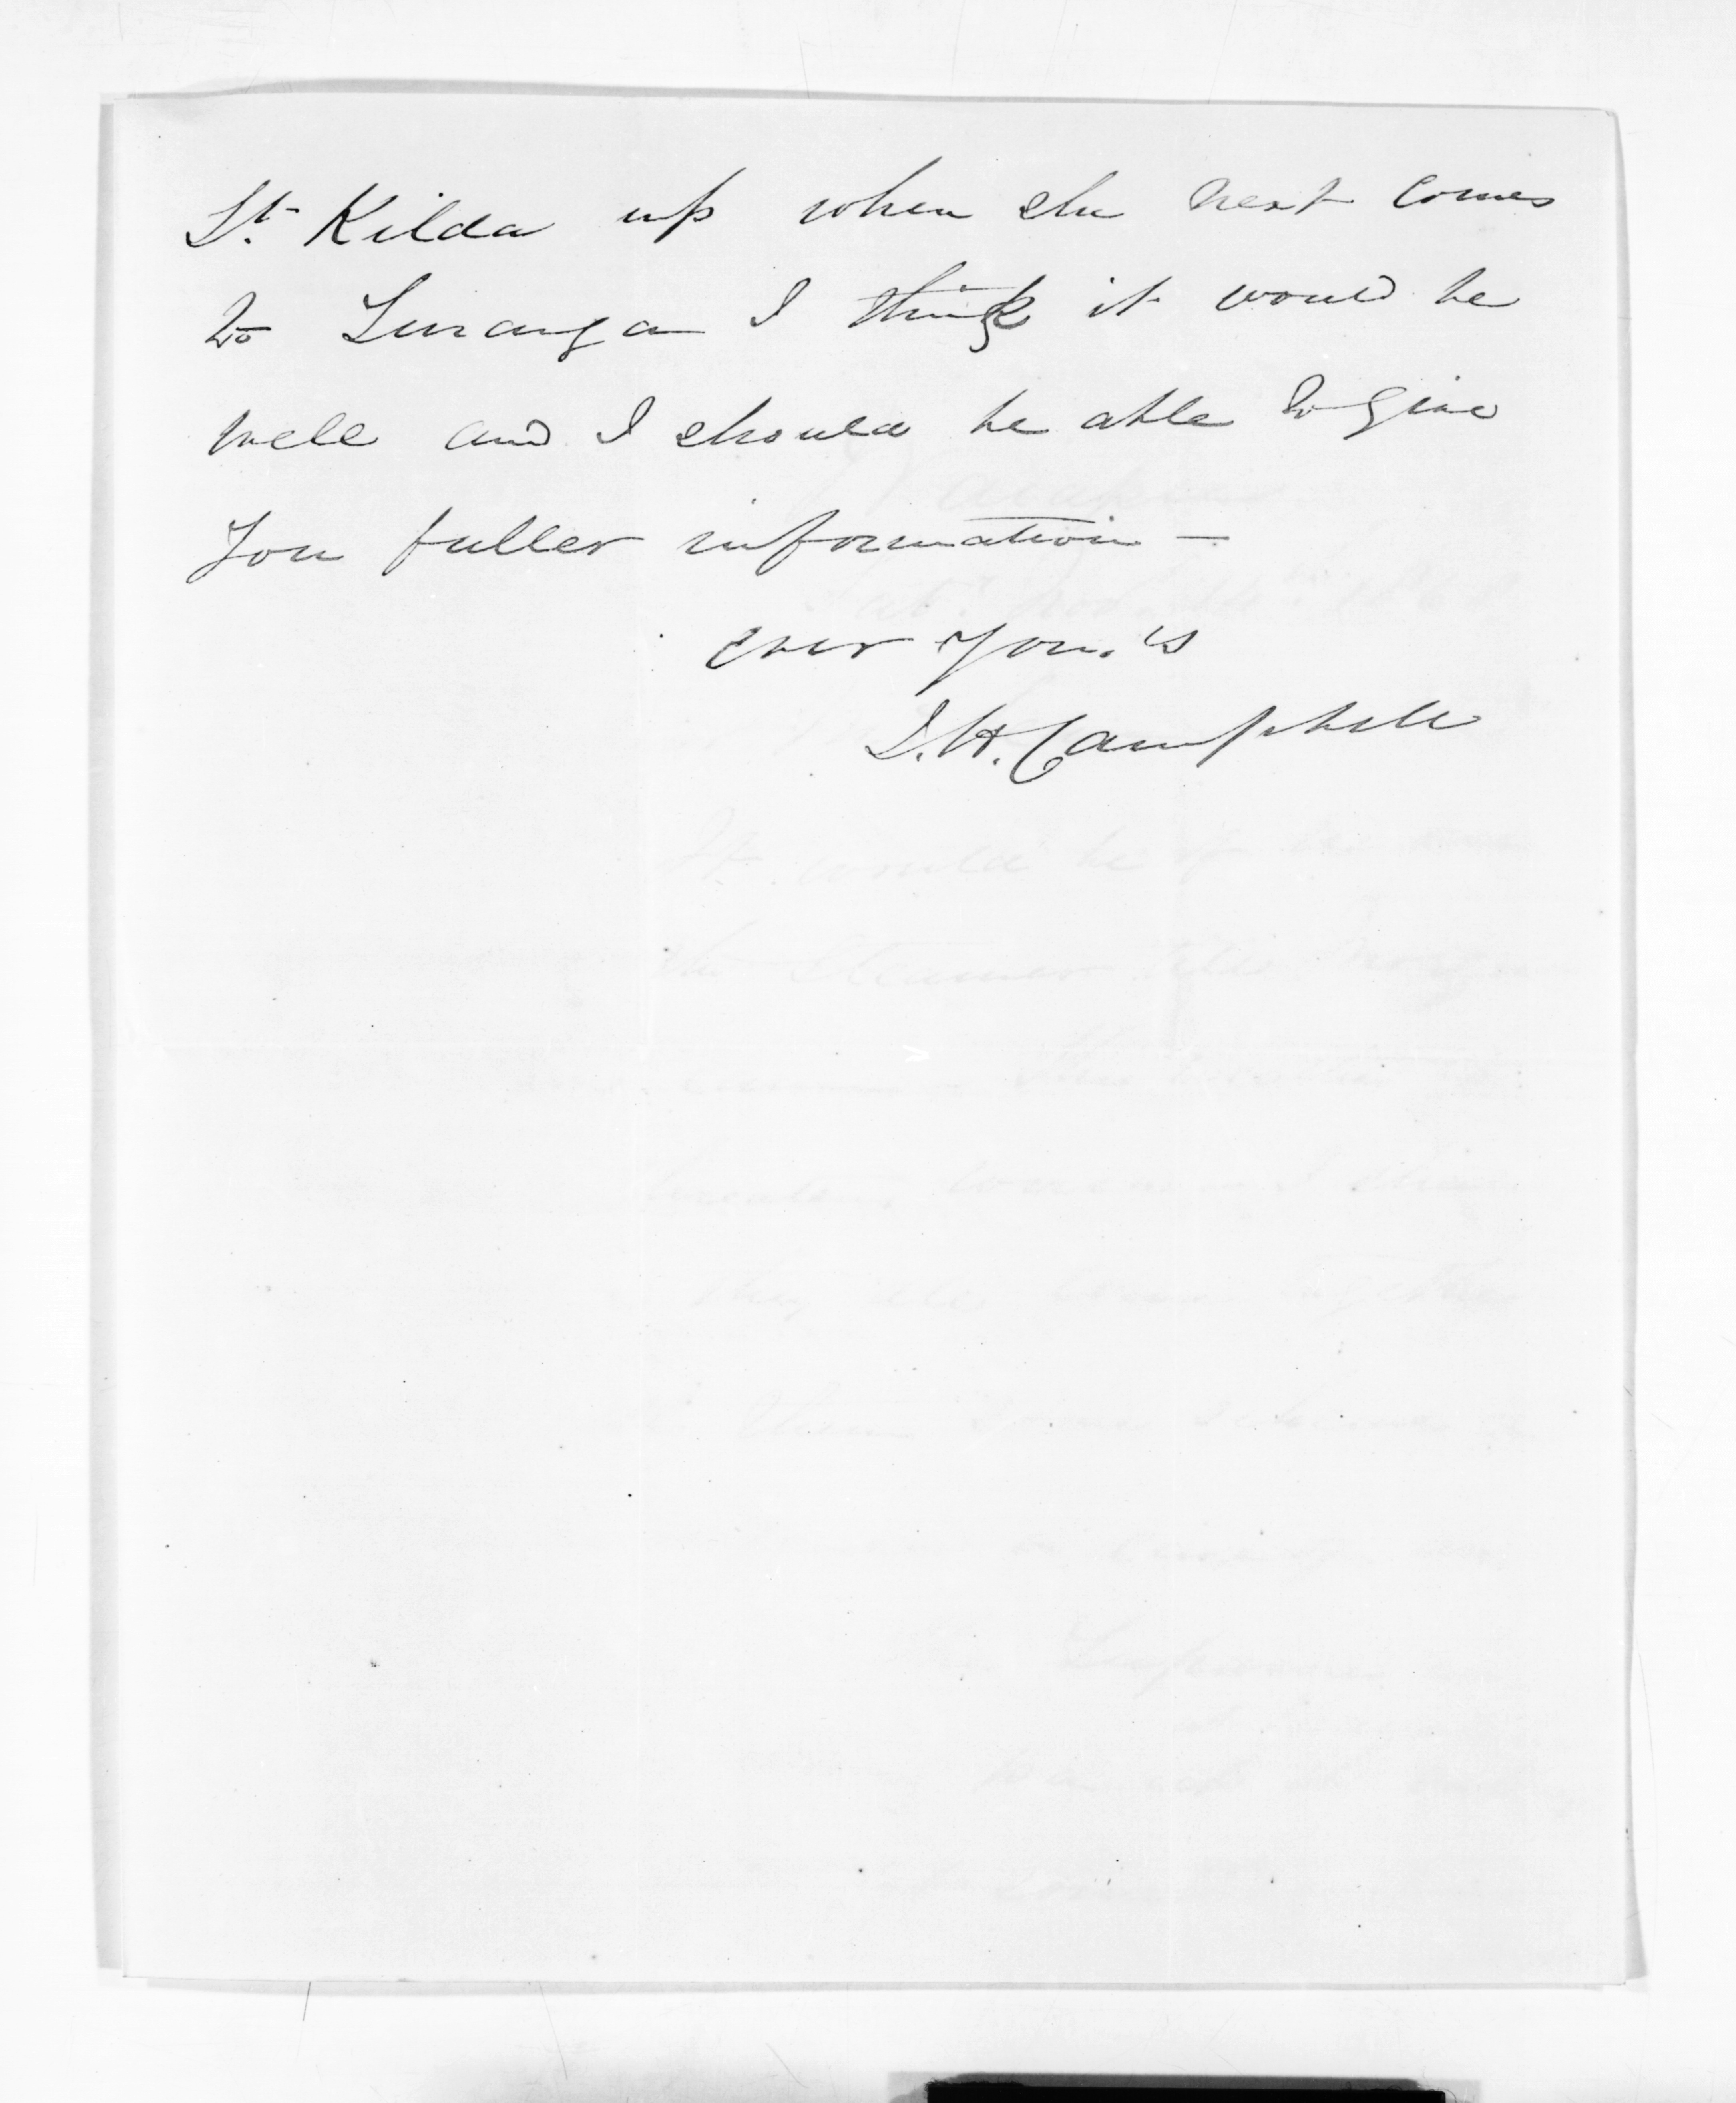 St. Kilda up when she next comes
to Turanga I think it would be
well and I should be able to give
you fuller information —
ever yours
J. H. Campbell